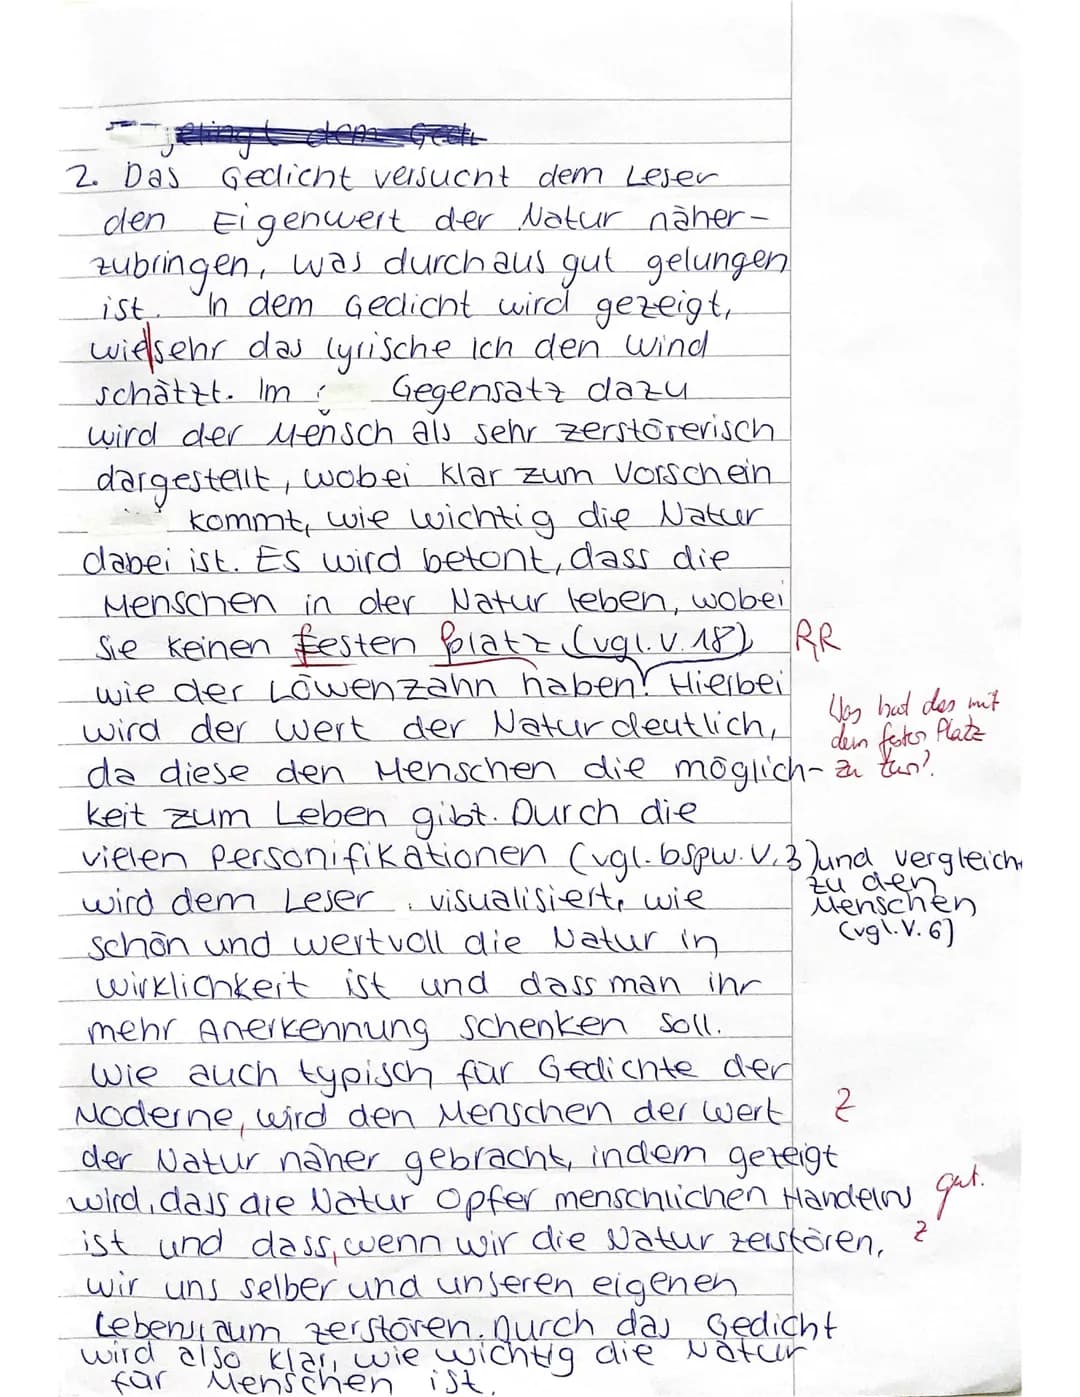 2. Das Gedicht versucht dem Leser
den Eigenwert der Natur näher-
zubringen, was durchaus gut gelungen
ist. In dem Gedicht wird gezeigt,
wie sehr das lyrische Ich den Wind
schätzt. Im Gegensatz dazu
wird der Mensch als sehr zerstörerisch
dargestellt, wobei klar zum Vorschein
kommt, wie wichtig die Natur
dabei ist. Es wird betont, dass die
Menschen in der Natur leben, wobei
sie keinen festen Platz (vgl. V. 18) RR
wie der Löwenzahn haben. Hierbei
wird der Wert der Natur deutlich,
Was hat das mit
dem festen Platz
zu tun?
da diese den Menschen die möglich-
keit zum Leben gibt. Durch die
vielen Personifikationen (vgl. bspw. V. 3) und vergleich
zu den
Menschen
(vgl. V. 6)
wird dem Leser visualisiert, wie
schön und wertvoll die Natur in
wirklichkeit ist und dass man ihr
mehr Anerkennung schenken soll.
Wie auch typisch für Gedichte der
Moderne, wird den Menschen der Wert Z
der Natur näher gebracht, indem gezeigt
wird, dass die Natur Opfer menschlichen Handelns gut.
ist und dass, wenn wir die Natur zerstören, Z
wir uns selber und unseren eigenen
Lebensraum zerstören. Durch das Gedicht
wird also klar, wie wichtig die Natur
für Menschen ist.